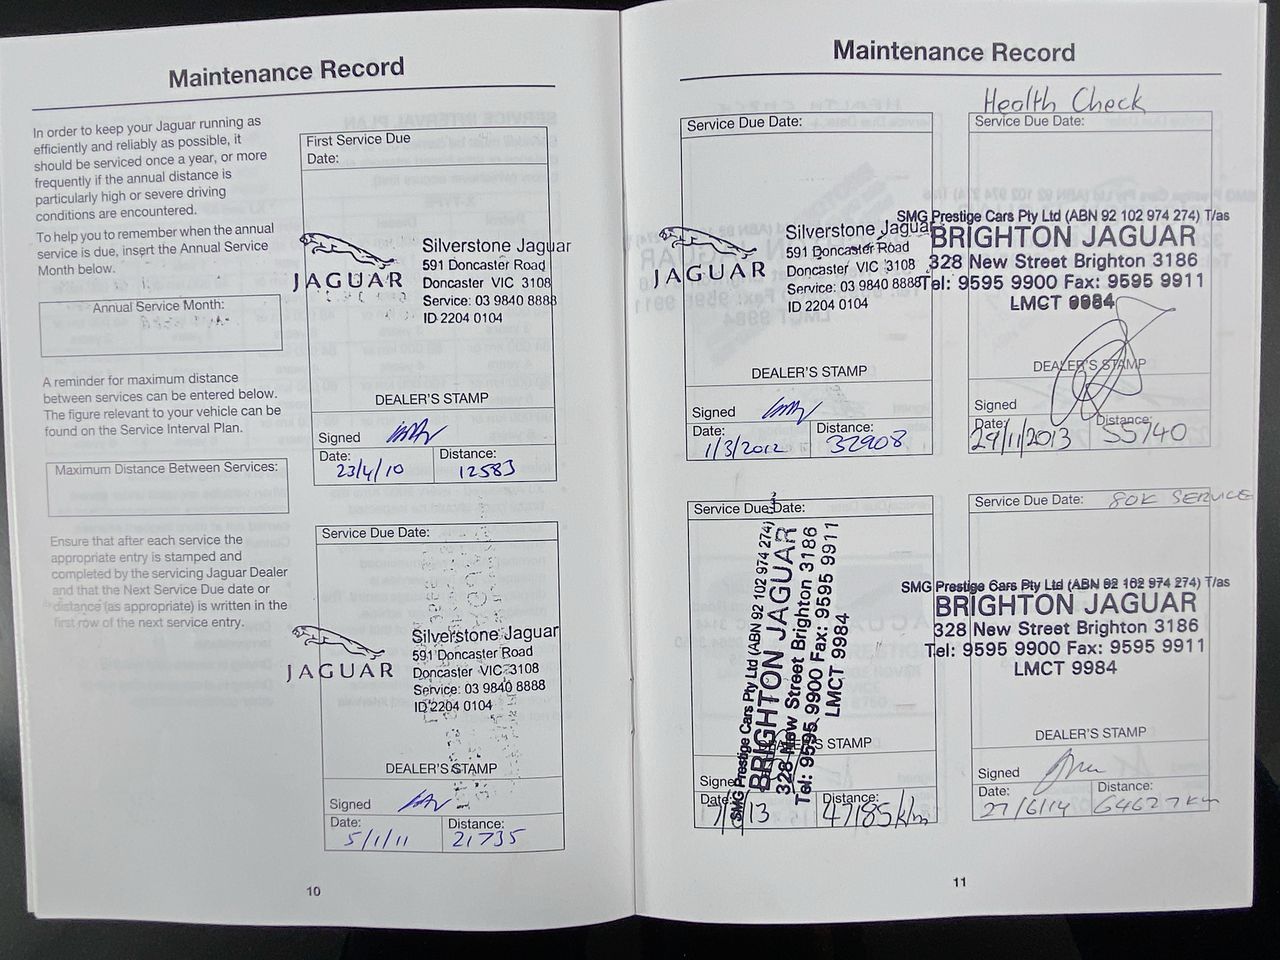 Maintenance Record
In order to keep your Jaguar running as
efficiently and reliably as possible, it
should be serviced once a year, or more
frequently if the annual distance is
particularly high or severe driving
conditions are encountered.
To help you to remember when the annual
service is due, insert the Annual Service
Month below.
Annual Service Month:
A reminder for maximum distance
between services can be entered below.
The figure relevant to your vehicle can be
found on the Service Interval Plan.
Maximum Distance Between Services:
Ensure that after each service the
appropriate entry is stamped and
completed by the servicing Jaguar Dealer
and that the Next Service Due date or
distance (as appropriate) is written in the
first row of the next service entry.
First Service Due
Date:
JAGUAR
Silverstone Jaguar
591 Doncaster Road
Doncaster VIC 3108
Service: 03 9840 8888
ID 2204 0104
DEALER'S STAMP
Signed
Date: Distance:
23/4/10 12583
Service Due Date:
JAGUAR
Silverstone Jaguar
591 Doncaster Road
Doncaster VIC 3108
Service: 03 9840 8888
ID 2204 0104
DEALER'S STAMP
Signed
Date: Distance:
5/1/11 21735
10
Maintenance Record
Service Due Date:
JAGUAR
Silverstone Jaguar
591 Doncaster Road
Doncaster VIC 3108
Service: 03 9840 8888
ID 2204 0104
DEALER'S STAMP
Signed
Date: Distance:
1/3/2012 32908
Health Check
Service Due Date:
SMG Prestige Cars Pty Ltd (ABN 92 102 974 274) T/as
BRIGHTON JAGUAR
328 New Street Brighton 3186
Tel: 9595 9900 Fax: 9595 9911
LMCT 9984
DEALER'S STAMP
Signed
Date: Distance:
29/11/2013 55740
Service Due Date:
SMG Prestige Cars Pty Ltd (ABN 92 102 974 274)
BRIGHTON JAGUAR
328 New Street Brighton 3186
Tel: 9595 9900 Fax: 9595 9911
LMCT 9984
DEALER'S STAMP
Signed
Date: Distance:
13 47185 k/m
Service Due Date: 80K SERVICE
SMG Prestige Cars Pty Ltd (ABN 92 102 974 274) T/as
BRIGHTON JAGUAR
328 New Street Brighton 3186
Tel: 9595 9900 Fax: 9595 9911
LMCT 9984
DEALER'S STAMP
Signed
Date: Distance:
27/6/14 64627km
11